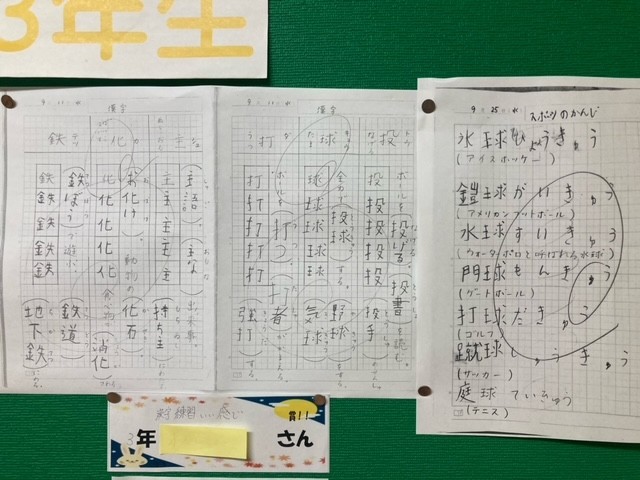 3年生
9.11.水
漢字
鉄
化
主
主語
主な
出来事。
主主主主主
持ち主
お化け
動物の
化石
化化化化化
食べ物
消化
鉄ぼう
で遊ぶ。
鉄道
鉄鉄鉄鉄鉄
地下鉄
9.11.水
漢字
打
球
投
ボールを
投げる。
投書
を読む。
投投投投投
投手
投球
する。
野球
をする。
球球球球球
気球
ボールを
打つ。
打者
打打打打打
強打
する。
9.25.水
スポーツのかんじ
氷球 ひょうきゅう
(アイスホッケー)
鎧球 がいきゅう
(アメリカンフットボール)
水球 すいきゅう
(ウォーターポロと呼ばれる水球)
門球 もんきゅう
(ゲートボール)
打球 だきゅう
(ゴルフ)
蹴球 しゅうきゅう
(サッカー)
庭球 ていきゅう
(テニス)
練習いい感じ
賞!!
3年
さん